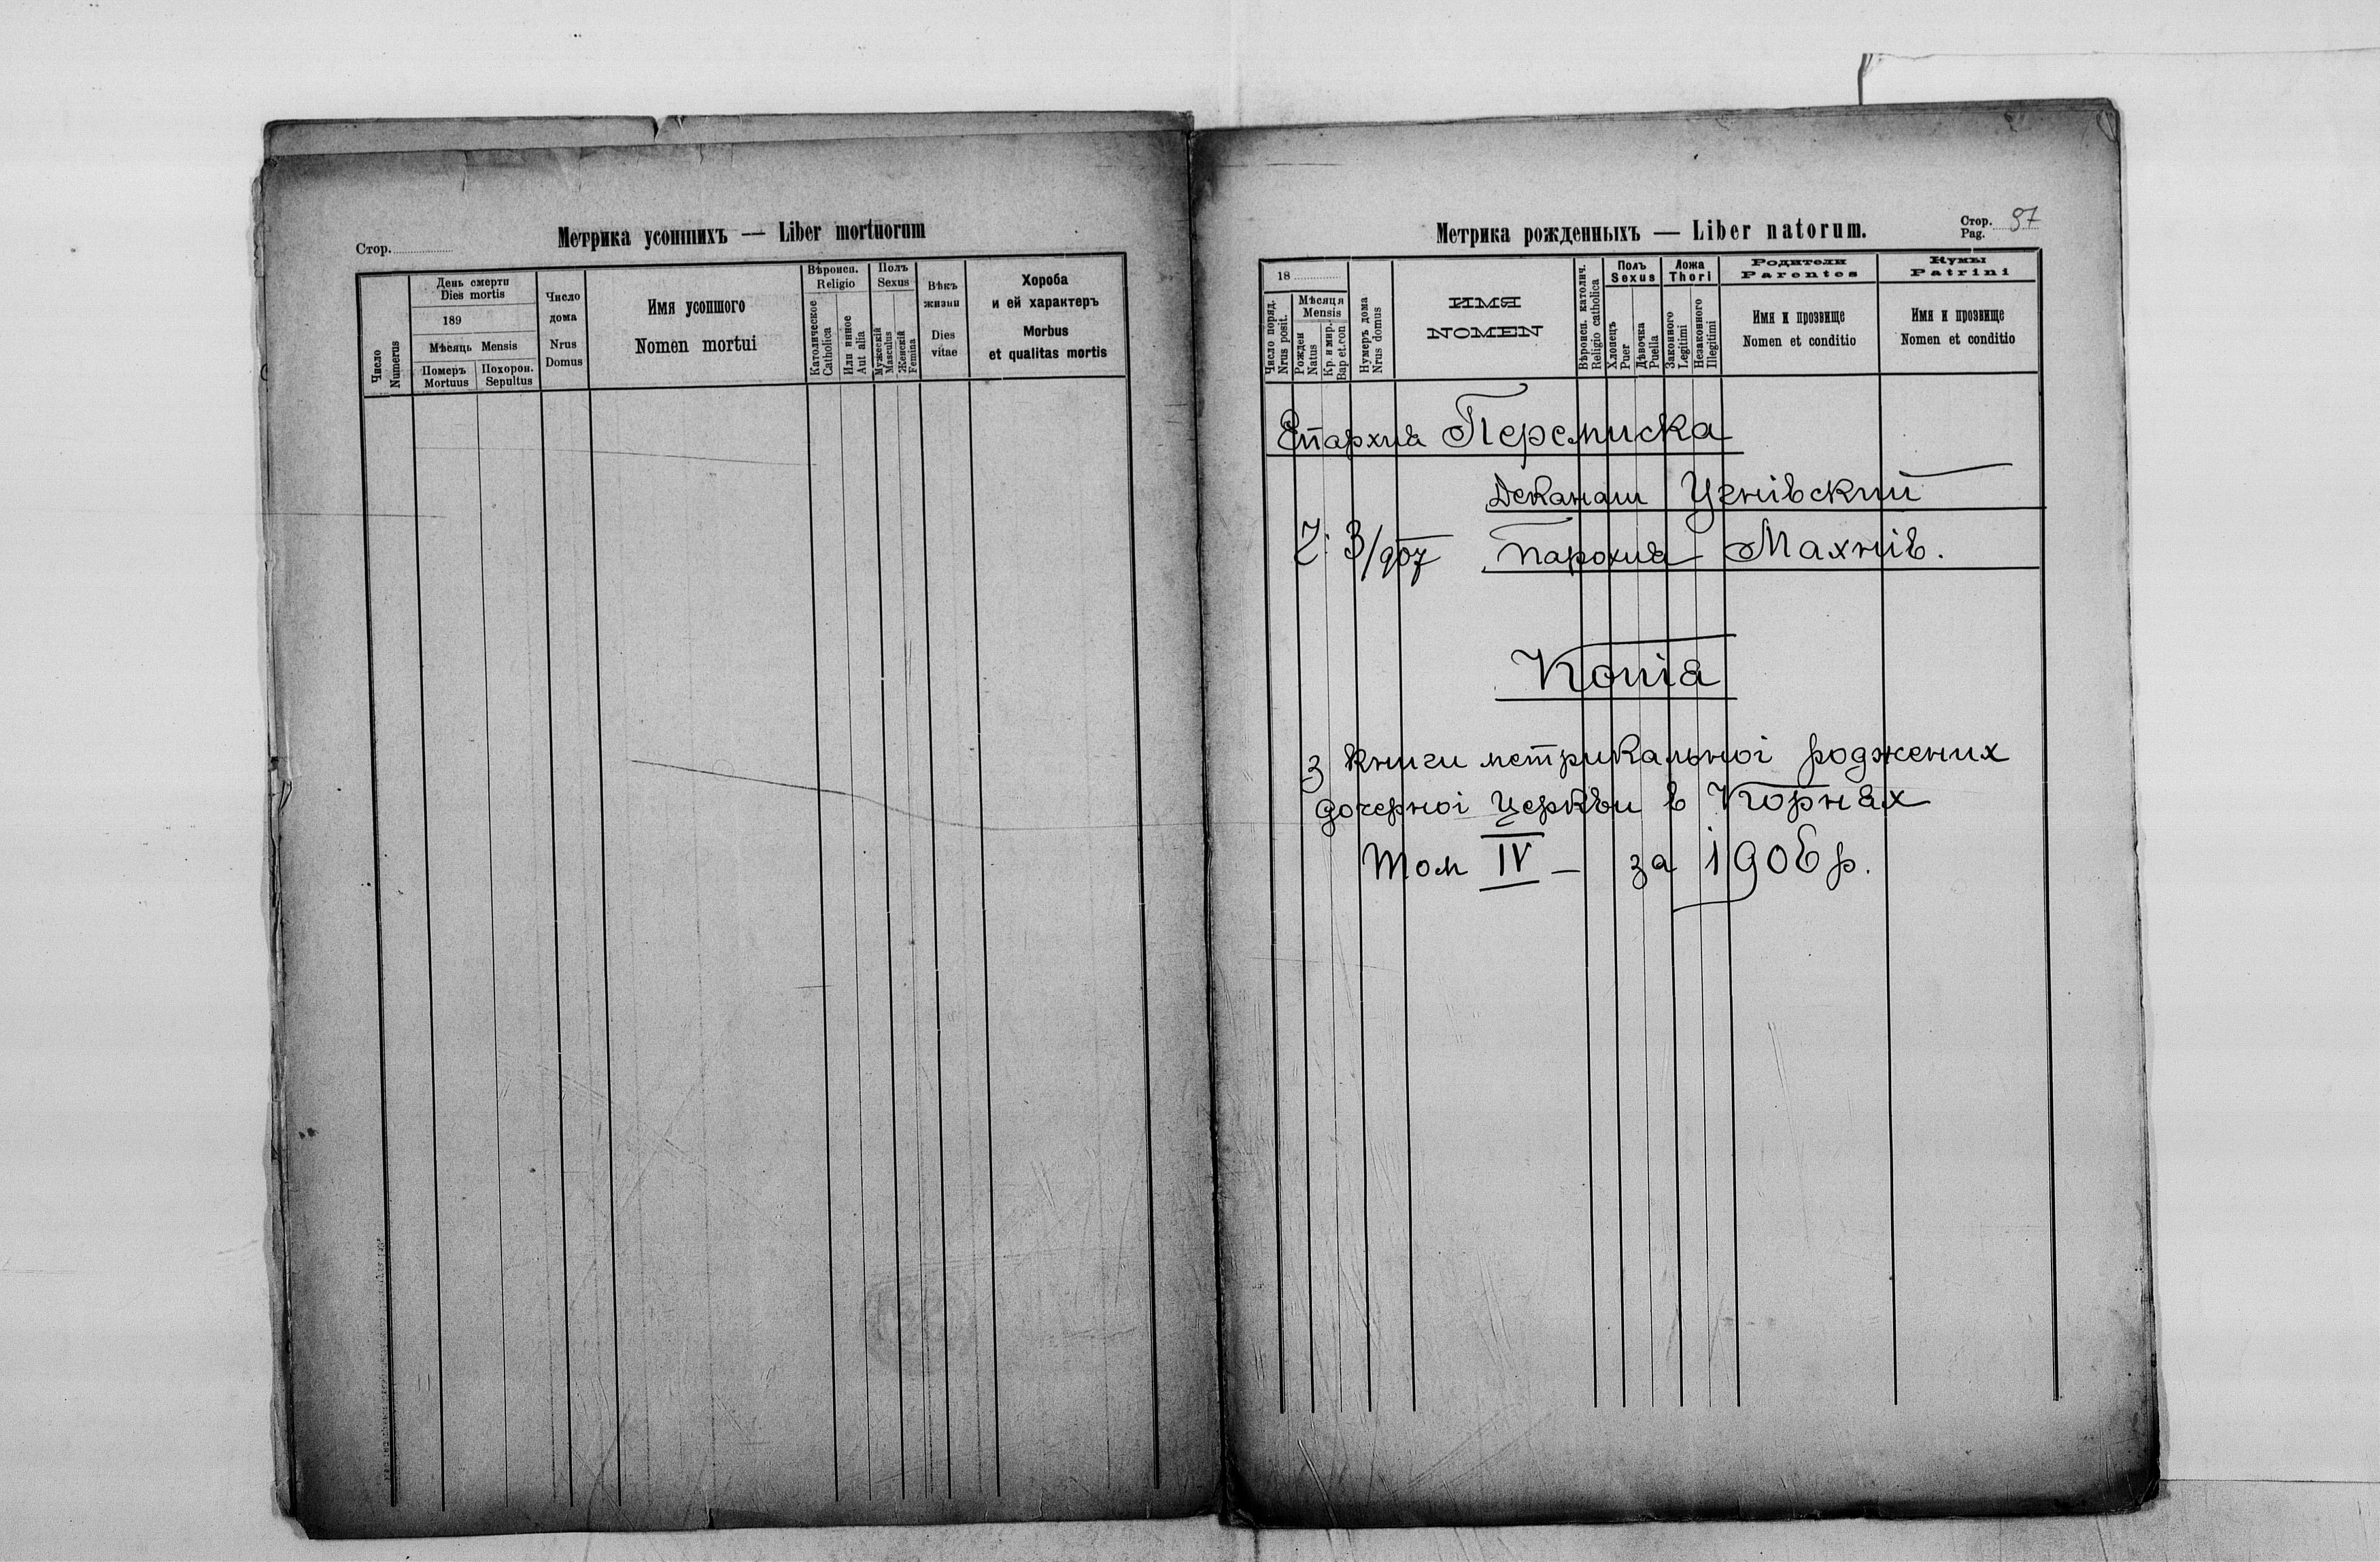 Стор.
Метрика усопшихъ — Liber mortuorum
Число
Numerus
День смерти
Dies mortis
189
Мѣсяць Mensis
Померъ
Mortuus
Похорон.
Sepultus
Число
дома
Nrus
Domus
Имя усопшого
Nomen mortui
Вѣроисп.
Religio
Католическое
Catholica
Или инное
Aut alia
Полъ
Sexus
Мужескій
Masculus
Женскій
Femina
Вѣкъ
жизни
Dies
vitae
Хороба
и ей характеръ
Morbus
et qualitas mortis
Метрика рожденныхъ — Liber natorum.
Стор. 97
Pag.
18
Число поряд.
Nrus posit.
Мѣсяця
Mensis
Рожден
Natus
Кр. и мир.
Bap et.con
Нумеръ дома
Nrus domus
ИМЯ
NOMEN
Вѣроисп. католич.
Religio catholica
Полъ
Sexus
Хлопецъ
Puer
Дѣвочка
Puella
Ложа
Thori
Законного
Legitimi
Незаконного
Illegitimi
Родители
Parentes
Имя и прозвище
Nomen et conditio
Кумы
Patrini
Имя и прозвище
Nomen et conditio
Епархия Перемиска
Деканат Угнівский
Ч: 3/907 Парохия Махнів.
Копія
з книги метрикальної роджених
дочерної Церкви в Корнях
Том IV — за 1906 р.